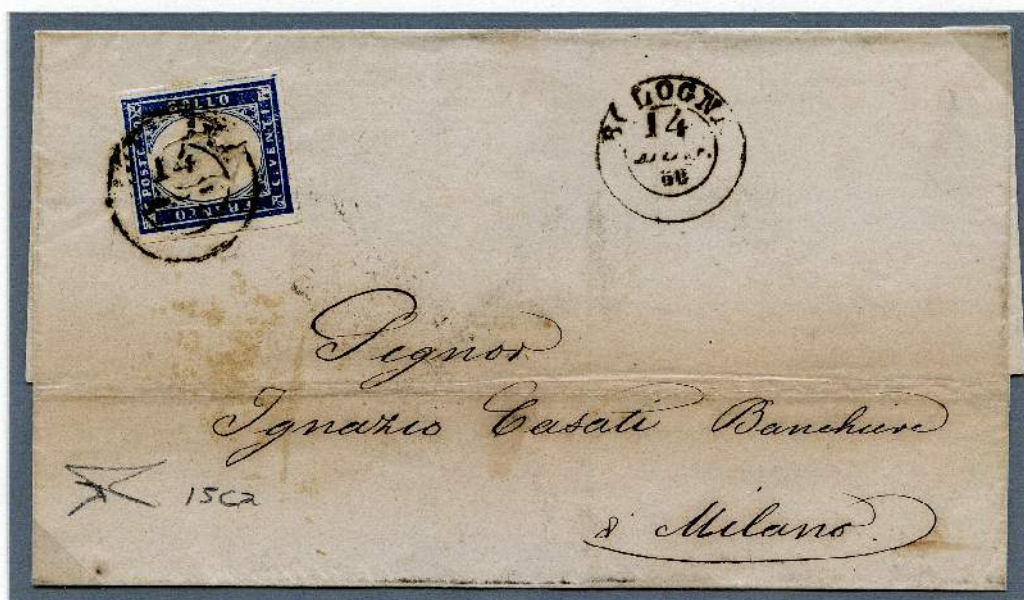 BOLLO
POSTE
C. VENTI
FRANCO
14
BOLOGNA
14
60
Signor
Ignazio Casati Banchiere
Milano
15C2